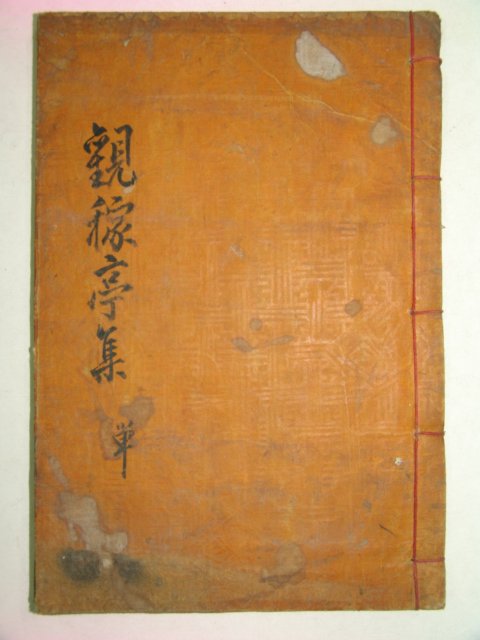 觀稼亭集
単